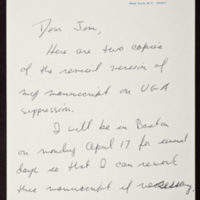 Dear Jim,
Here are two copies
of the revised version of
my manuscript on UGA
suppression.
I will be in Boston
on Monday April 17 for several
days so that I can rework
this manuscript if necessary.